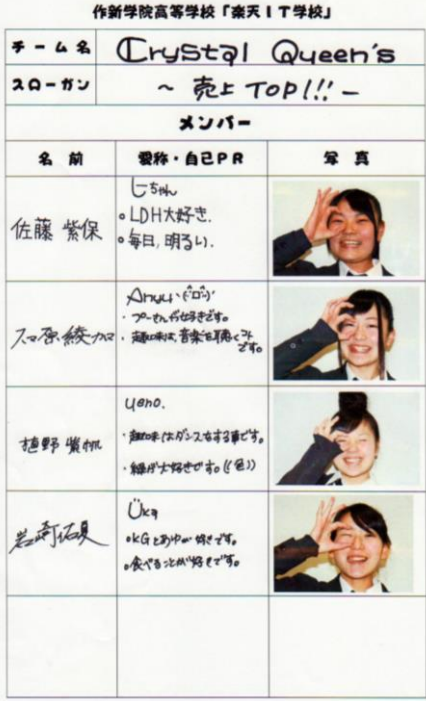 作新学院高等学校「楽天IT学校」
チーム名 Crystal Queen's
スローガン ~ 売上 TOP!!! ー
メンバー
名前 愛称・自己PR 写真
佐藤 紫保
しちゃん
。LDH大好き.
。毎日,明るい.
・プーさんが好きです。
・趣味は、音楽を聴くコト
です。
植野 紫帆
ueno.
・趣味はダンスをする事です。
・緑が大好きです。
岩崎 佑夏
Üka
。KGとあゆが好きです。
。食べることが好きです。